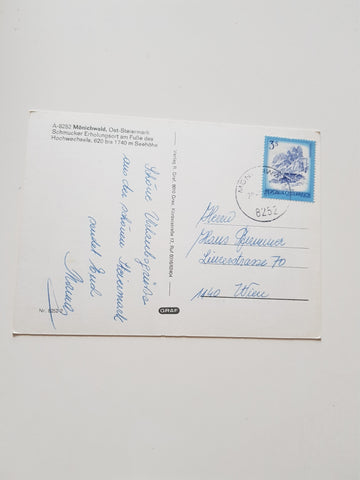 A-8252 Mönichwald, Ost-Steiermark
Schmucker Erholungsort am Fuße des
Hochwechsels, 620 bis 1740 m Seehöhe
Schöne Urlaubsgrüße
aus der schönen Steiermark
sendet Euch
Nr. 8252/2
Verlag R. Graf, 8010 Graz,
GRAF
3 S
REPUBLIK ÖSTERREICH
8252
Herrn
Hans
Linzerstrasse 70
1140 Wien